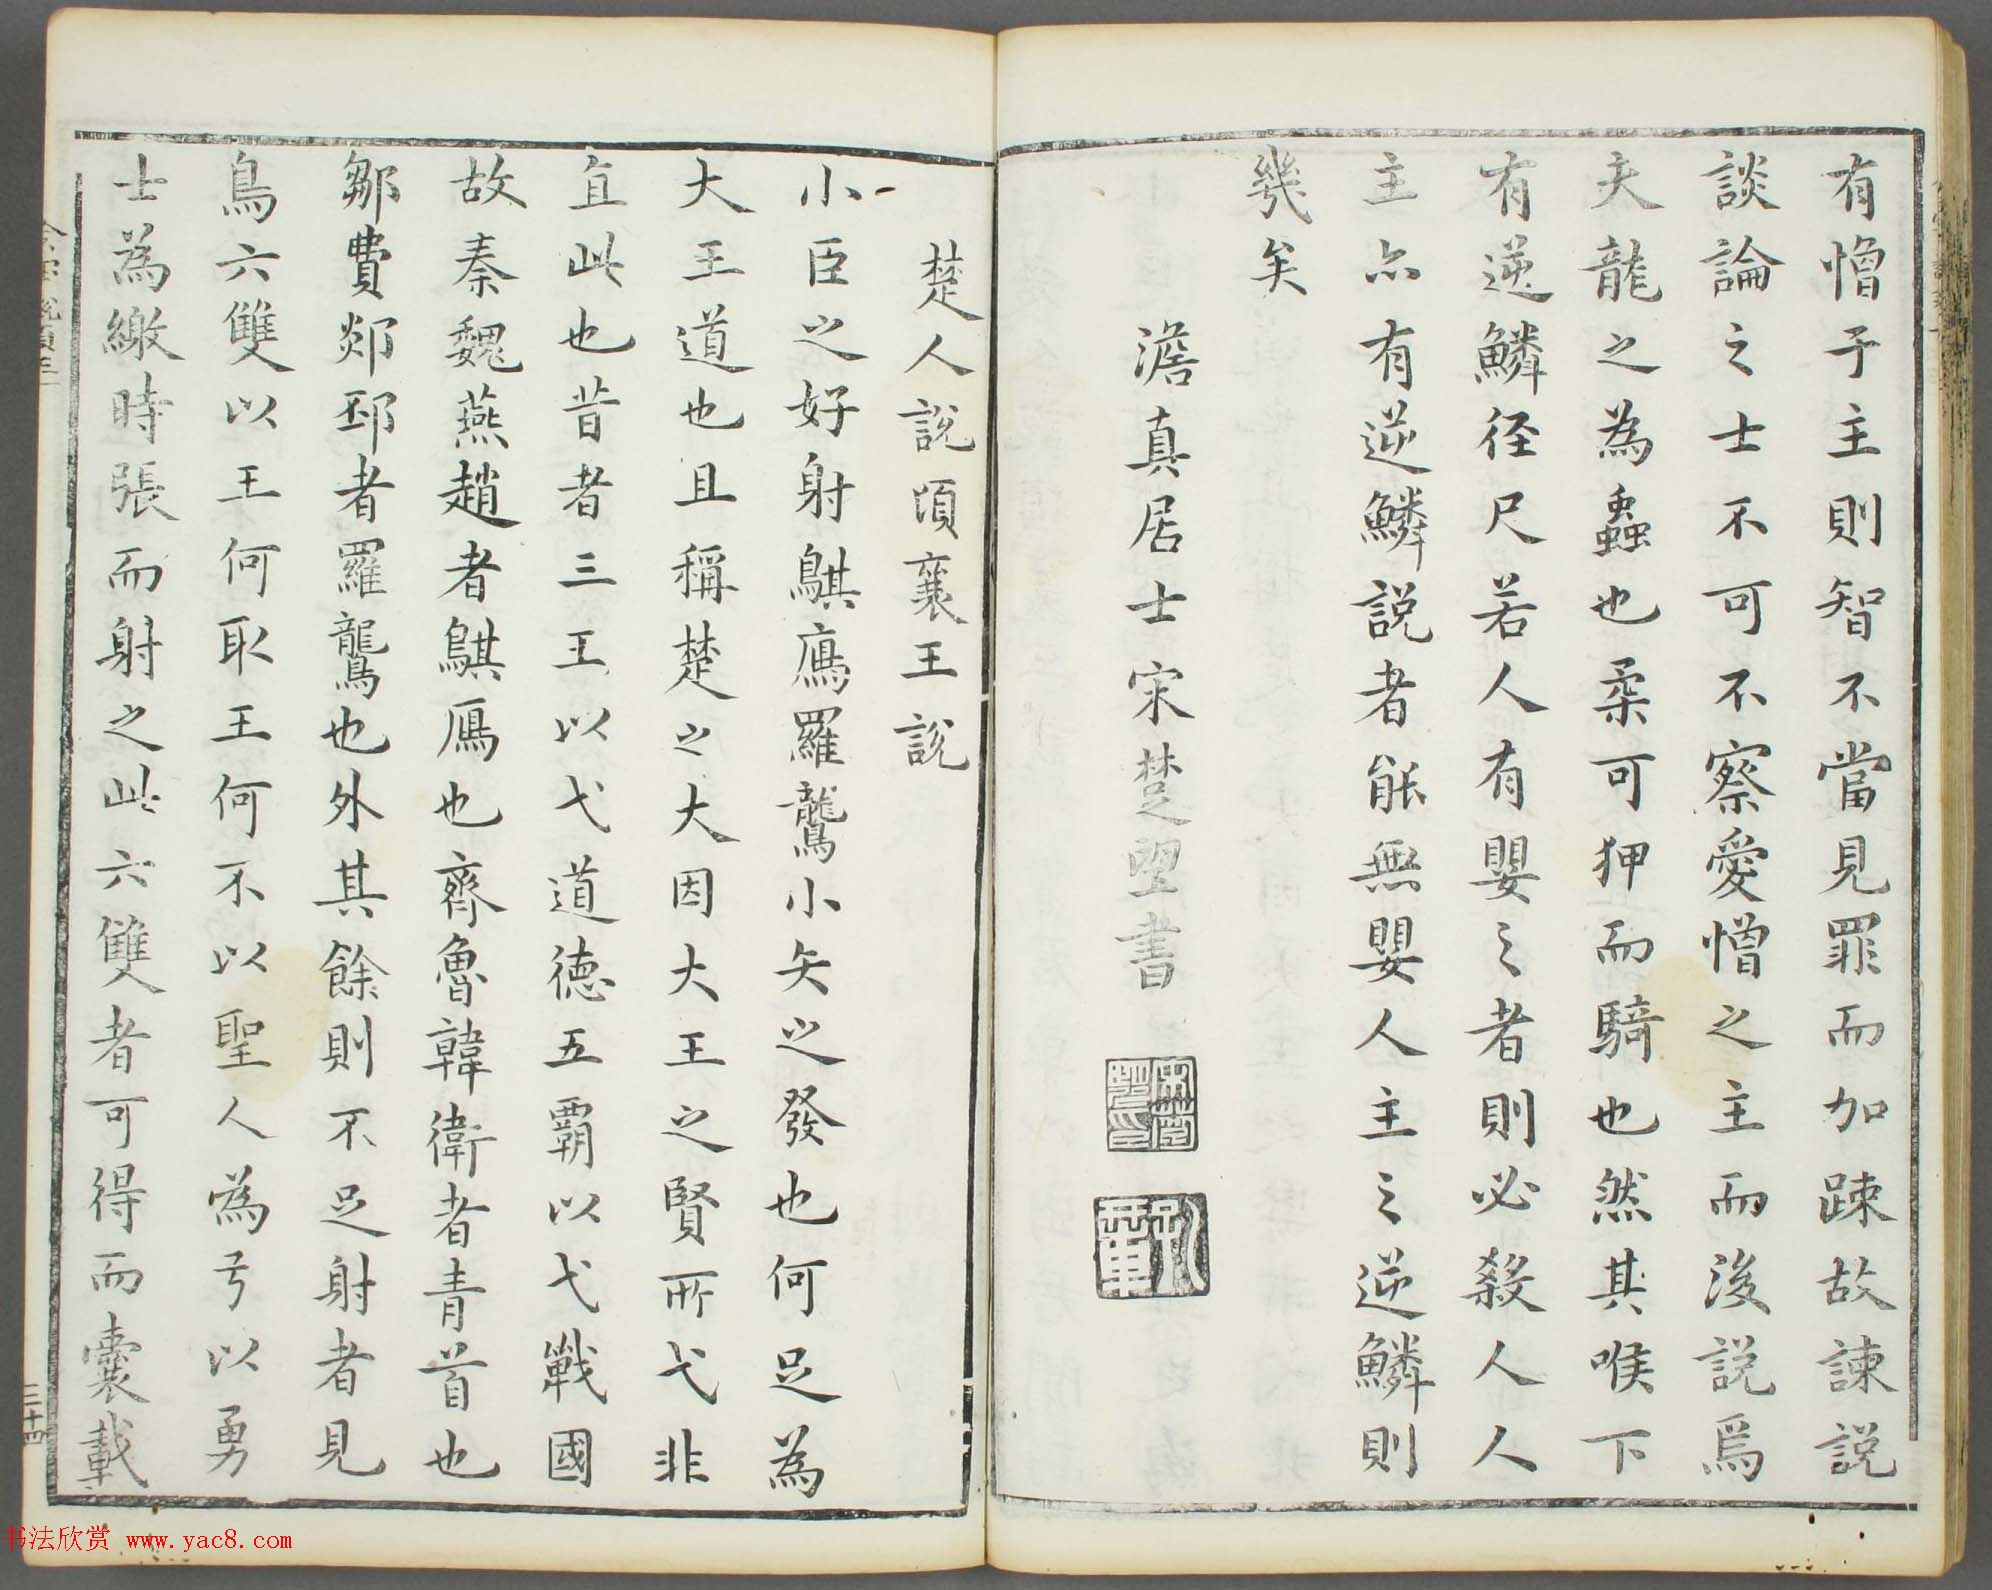 有憎于主則智不當見罪而加踈故諫説
談論之士不可不察愛憎之主而後説焉
夫龍之為蟲也柔可狎而騎也然其喉下
有逆鱗径尺若人有嬰之者則必殺人人
主亦有逆鱗説者能無嬰人主之逆鱗則
幾矣
澹真居士宋楚望書
楚人説頃襄王説
小臣之好射鶀鴈羅鸗小矢之發也何足為
大王道也且稱楚之大因大王之賢所弋非
直此也昔者三王以弋道德五覇以弋戰國
故秦魏燕趙者鶀鴈也齊魯韓衛者青首也
鄒費郯邳者羅鸗也外其餘則不足射者見
鳥六雙以王何取王何不以聖人為弓以勇
士為繳時張而射之此六雙者可得而囊載
三十四
书法欣赏 www.yac8.com